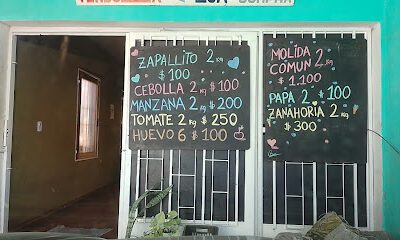 VERDULERIA
LUA
COMPRA
ZAPALLITO 2 KG
$100
CEBOLLA 2 KG $100
MANZANA 2 KG $200
TOMATE 2 KG $250
HUEVO 6 $100
MOLIDA
COMUN 2 KG
$1.100
PAPA 2 $100
ZANAHORIA 2 KG
$300